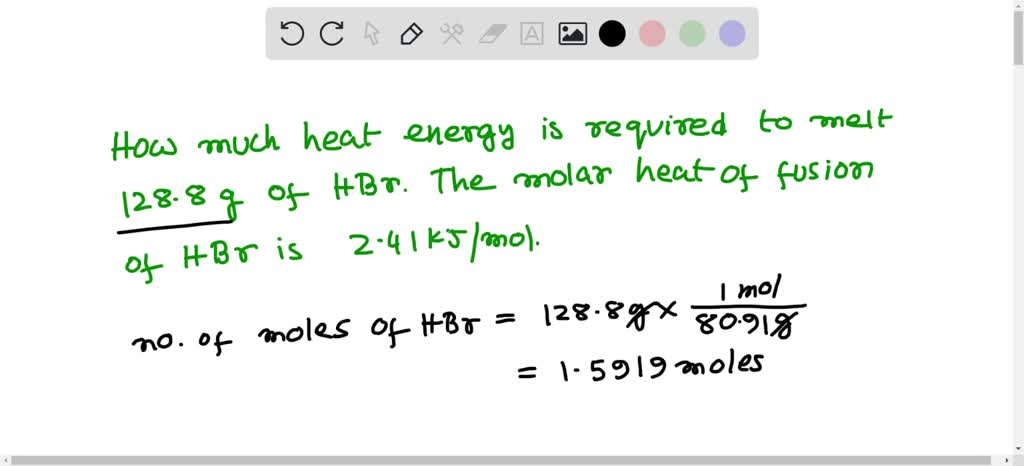 A
How much heat energy is required to melt
128.8 g of HBr. The molar heat of fusion
of HBr is 2.41 kJ/mol.
no. of moles of HBr = 128.8g x 1 mol / 80.91g
= 1.5919 moles